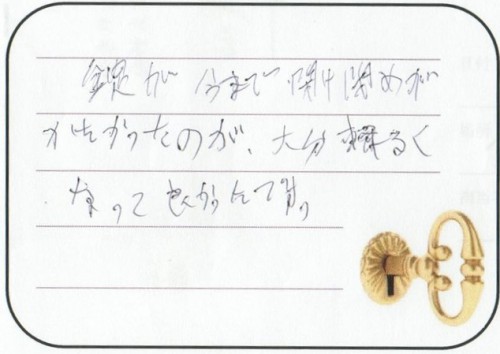 鍵が今まで開け閉めが
かたかったのが、大分軽るく
なって良かったです。